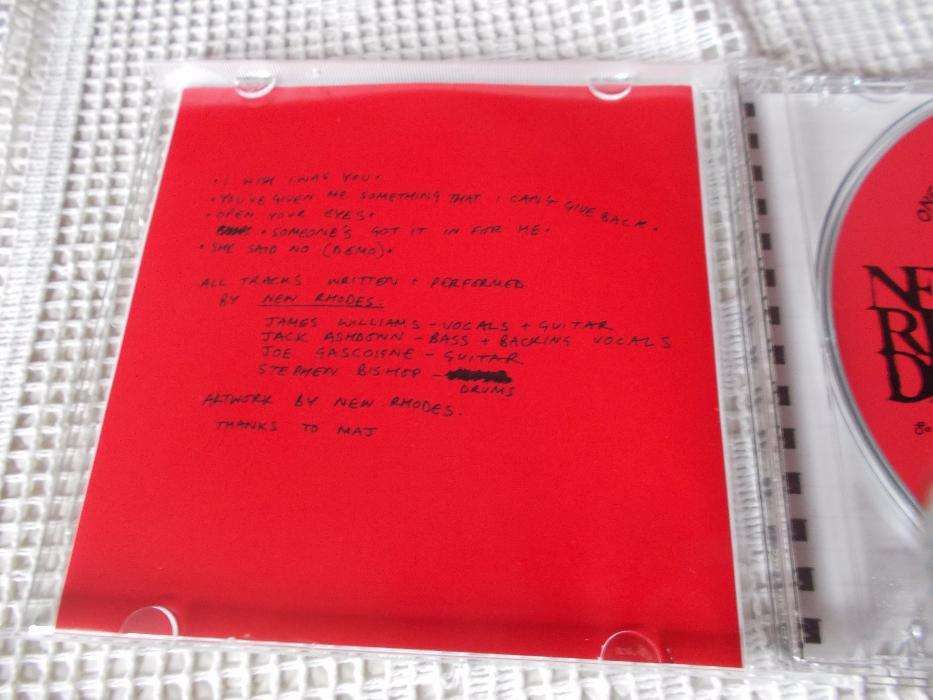 · I WISH I WAS YOU ·
· YOU'VE GIVEN ME SOMETHING THAT I CAN'T GIVE BACK ·
· OPEN YOUR EYES ·
· SOMEONE'S GOT IT IN FOR ME ·
· SHE SAID NO (DEMO) ·
ALL TRACKS WRITTEN + PERFORMED
BY NEW RHODES.
JAMES WILLIAMS - VOCALS + GUITAR
JACK ASHDOWN - BASS + BACKING VOCALS
JOE GASCOIGNE - GUITAR
STEPHEN BISHOP -
DRUMS
ARTWORK BY NEW RHODES.
THANKS TO MAJ